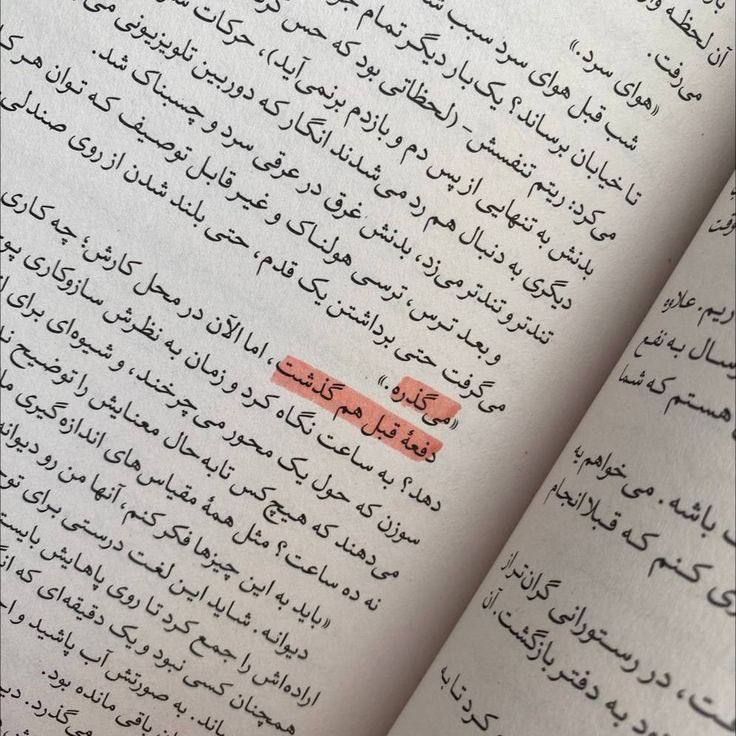 آن لحظه
می‌رفت.
«هوای سرد.»
شب قبل هوای سرد سبب
تا خیابان برساند؟ یک‌بار دیگر تمام
می‌کرد: ریتم تنفسش - (لحظاتی بود که حس
بدنش به تنهایی از پس دم و بازدم برنمی‌آید)، حرکات
دیگری به دنبال هم رد می‌شدند انگار که دوربین تلویزیونی
تندتر و تندتر می‌زد، بدنش غرق در عرقی سرد و چسبناک شد.
و بعد ترس، ترسی هولناک و غیرقابل توصیف که توان هر
می‌گرفت حتی برداشتن یک قدم، حتی بلند شدن از روی صندلی
«می‌گذره.»
دفعهٔ قبل هم گذشت، اما الآن در محل کارش؛ چه کاری
دهد؟ به ساعت نگاه کرد و زمان به نظرش سازوکاری
سوزن که حول یک محور می‌چرخند، و شیوه‌ای برای
می‌دهند که هیچ‌کس تابه‌حال معنایش را توضیح
نه ده ساعت؟ مثل همهٔ مقیاس‌های اندازه‌گیری
«باید به این چیزها فکر کنم، آنها من رو دیوانه
دیوانه. شاید این لغت درستی برای
اراده‌اش را جمع کرد تا روی پاهایش
همچنان کسی نبود و یک دقیقه‌ای که
به صورتش آب پاشید و
باقی مانده بود.
می‌گذرد.
وقت
ریم. علاوه
رسال به نفع
هستم که شما
باشه. می‌خواهم به
کنم که قبلا انجام
در رستورانی گران‌تر از
به دفتر بازگشت. آن
کرد تا به